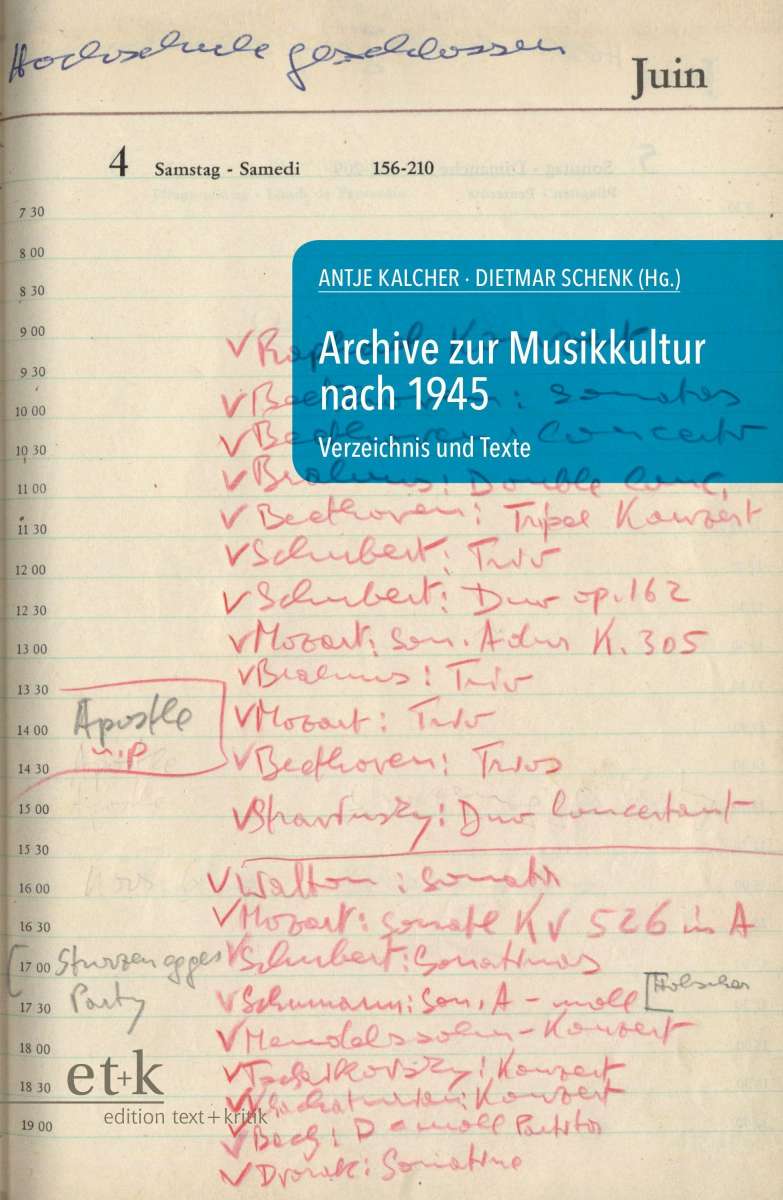 Hochschule geschlossen
Juin
4 Samstag - Samedi 156-210
7 30
8 00
8 30
ANTJE KALCHER · DIETMAR SCHENK (Hg.)
9 00
Archive zur Musikkultur
nach 1945
9 30
10 00
Beethoven: Sonatas
Beethoven: Concerto
Verzeichnis und Texte
10 30
Brahms: Double Conc.
11 00
Beethoven: Tripel Konzert
11 30
Schubert: Trio
12 00
Schubert: Duo op. 162
12 30
Mozart: Son. A dur K. 305
13 00
Brahms: Trio
13 30
Apostle
Mozart: Trio
14 00
n.p
Beethoven: Trios
14 30
15 00
Stravinsky: Duo Concertant
15 30
Walton: Sonata
16 00
Mozart: Sonate KV 526 in A
16 30
Schubert: Sonatinas
17 00
Party
Schumann: Son. A-moll
17 30
Mendelssohn-Konzert
18 00
et+k
Tschaikovsky: Konzert
18 30
Khachaturian: Konzert
edition text+kritik
19 00
Bach: D-moll Partita
Dvorak: Sonatine